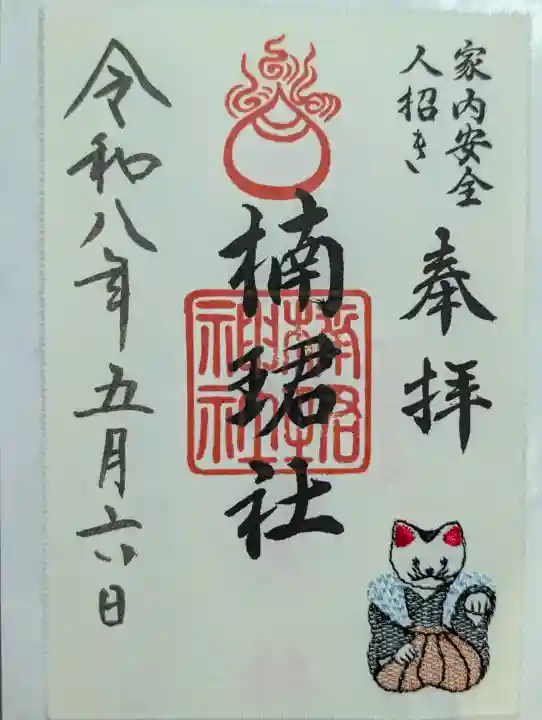 家内安全
人招き
奉拝
楠珺社
令和八年五月六日